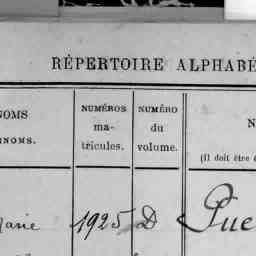 RÉPERTOIRE ALPHABÉ
NOMS
NOMS.
NUMÉROS
ma-
tricules.
NUMÉRO
du
volume.
N
(Il doit être
Marie 1925 D Que